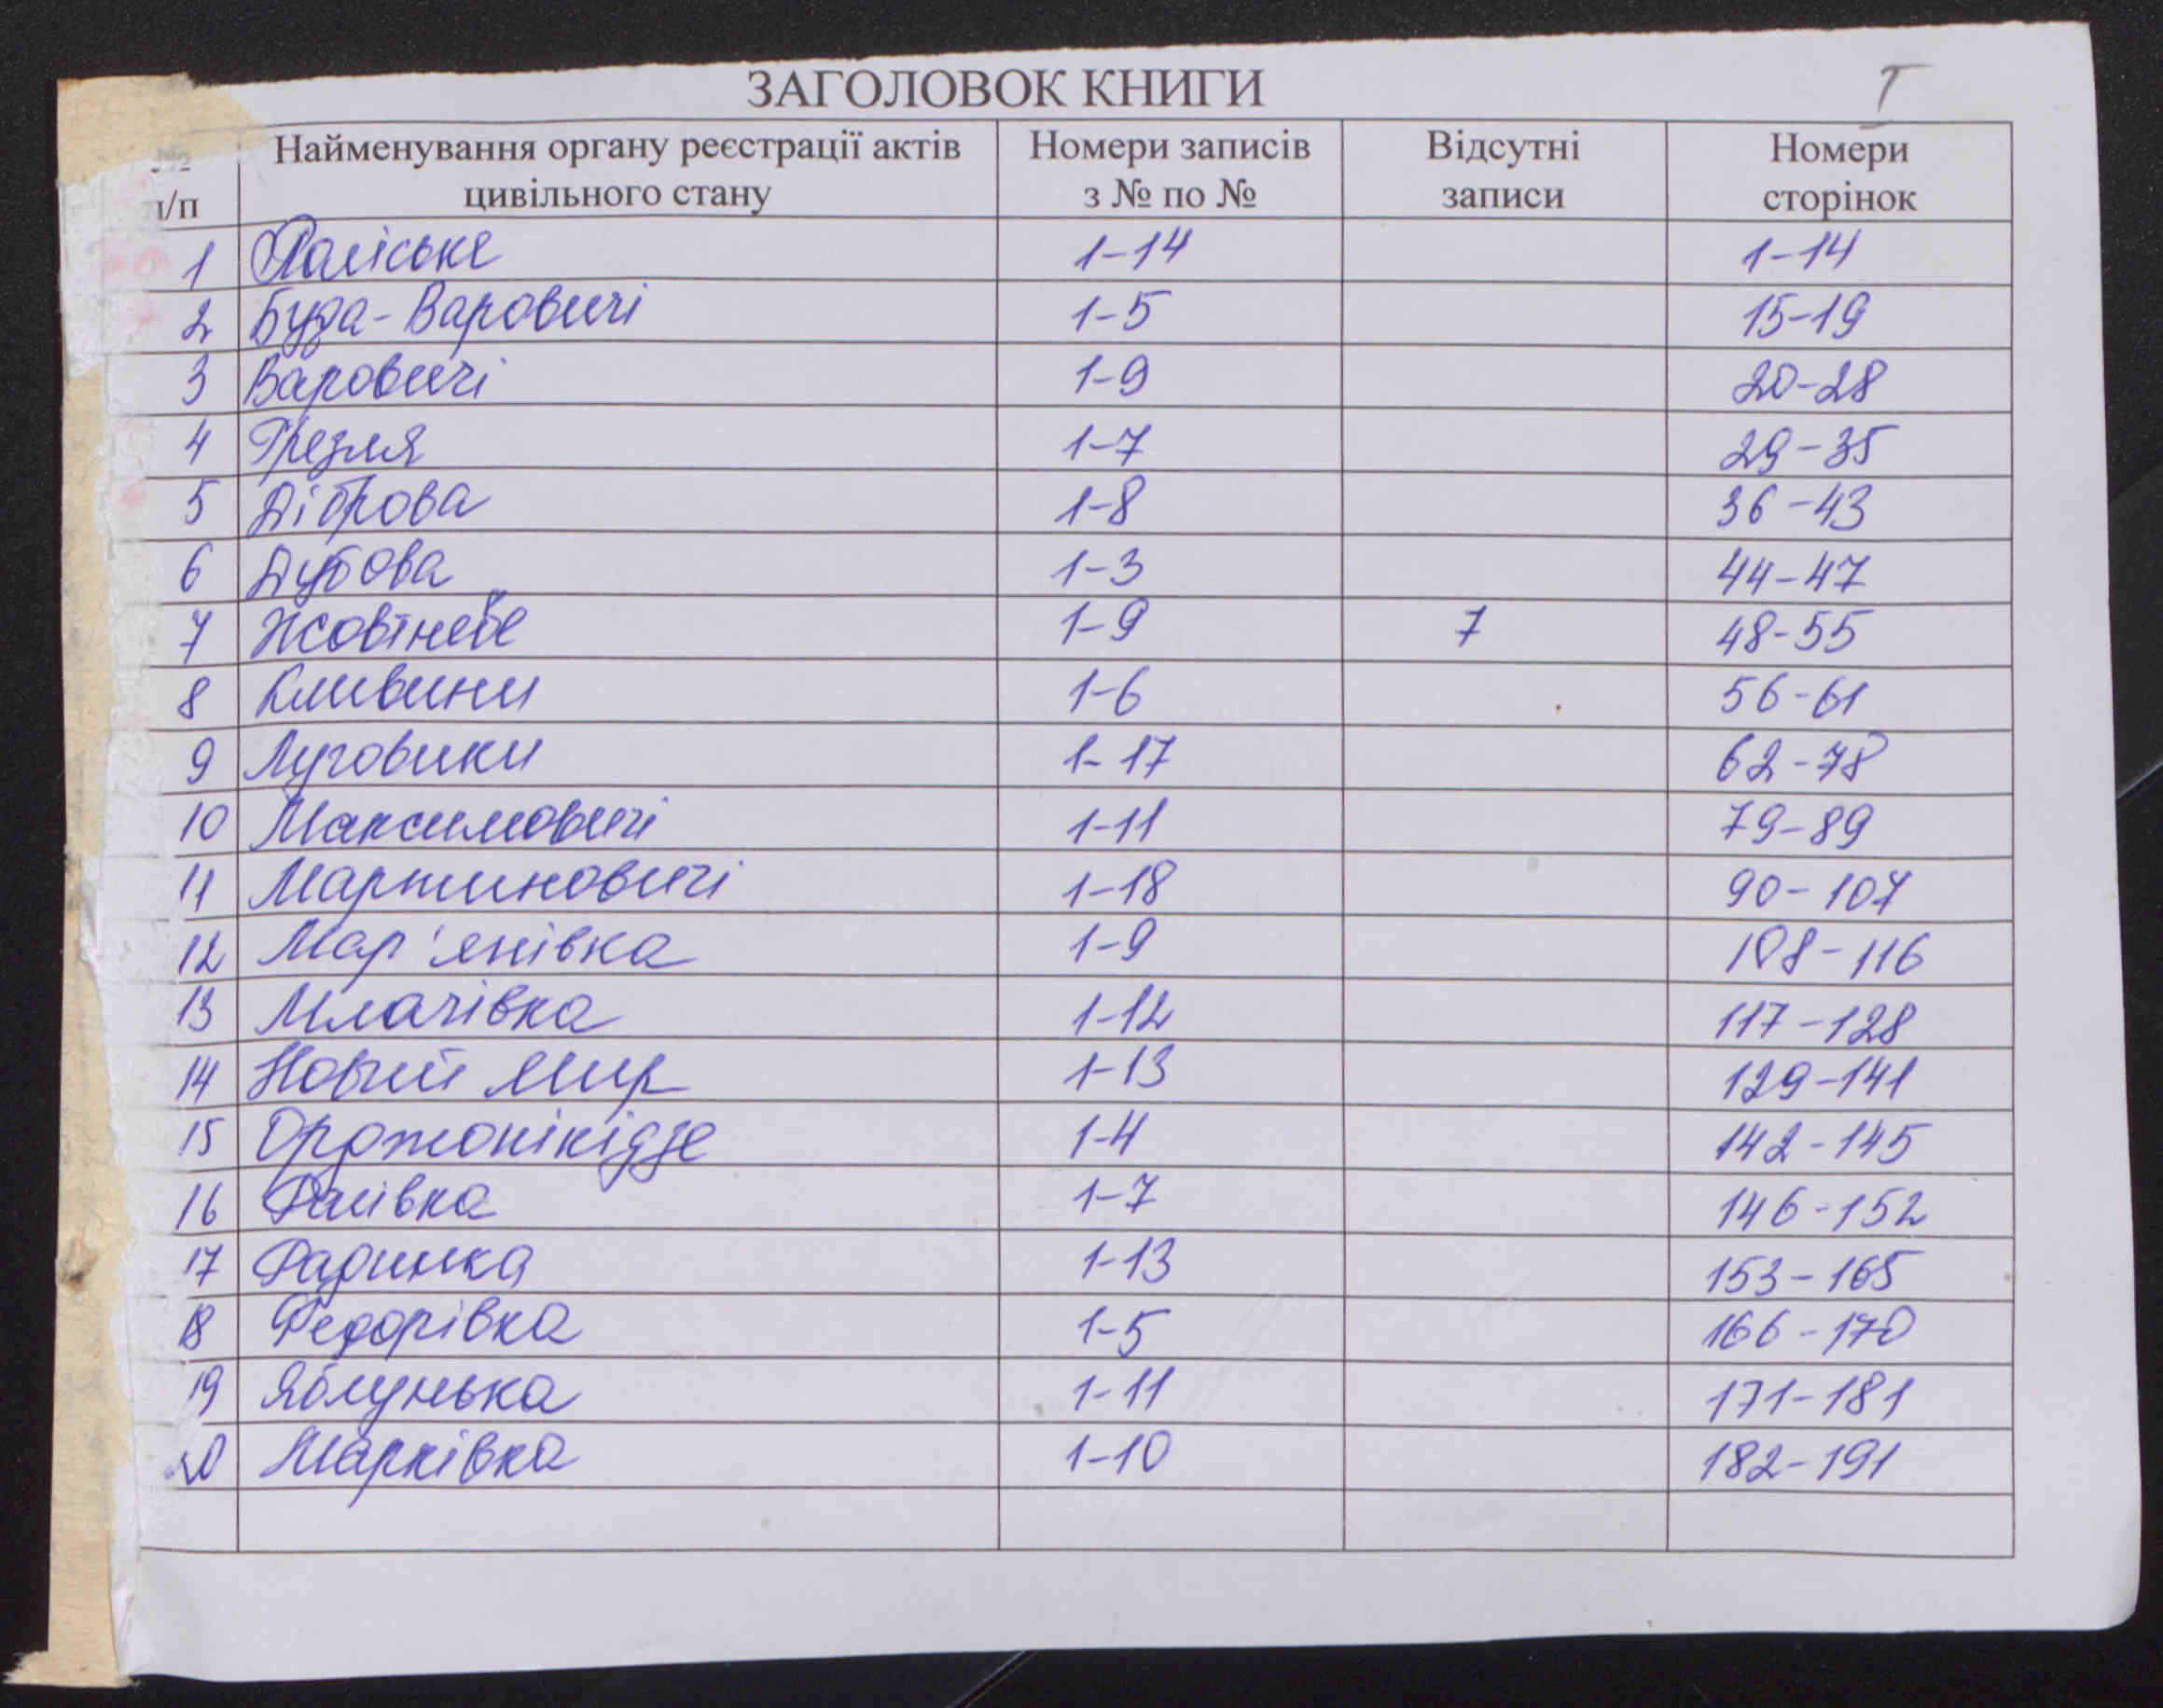 ЗАГОЛОВОК КНИГИ
I
№ п/п Найменування органу реєстрації актів цивільного стану Номери записів з № по № Відсутні записи Номери сторінок
1 Поліське 1-14 1-14
2 Буда-Варовичі 1-5 15-19
3 Варовичі 1-9 20-28
4 Грезля 1-7 29-35
5 Діброва 1-8 36-43
6 Дубова 1-3 44-47
7 Жовтневе 1-9 7 48-55
8 Кливини 1-6 56-61
9 Луговики 1-17 62-78
10 Максимовичі 1-11 79-89
11 Мартиновичі 1-18 90-107
12 Мар'янівка 1-9 108-116
13 Млачівка 1-12 117-128
14 Новий Мир 1-13 129-141
15 Орджонікідзе 1-4 142-145
16 1-7 146-152
17 Радинка 1-13 153-165
18 Федорівка 1-5 166-170
19 Яблунька 1-11 171-181
20 Шарківка 1-10 182-191